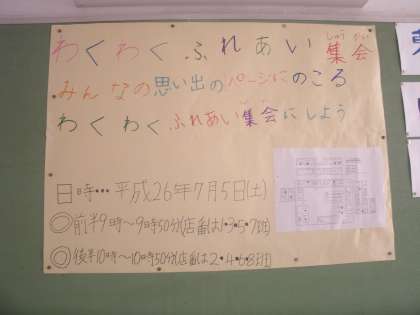 わくわくふれあい集会
しゅう かい
みんなの思い出のページにのこる
わくわくふれあい集会にしよう
日時…平成26年7月5日(土)
◎前半9時～9時50分(店番は1・3・5・7班)
◎後半10時～10時50分(店番は2・4・6・8班)